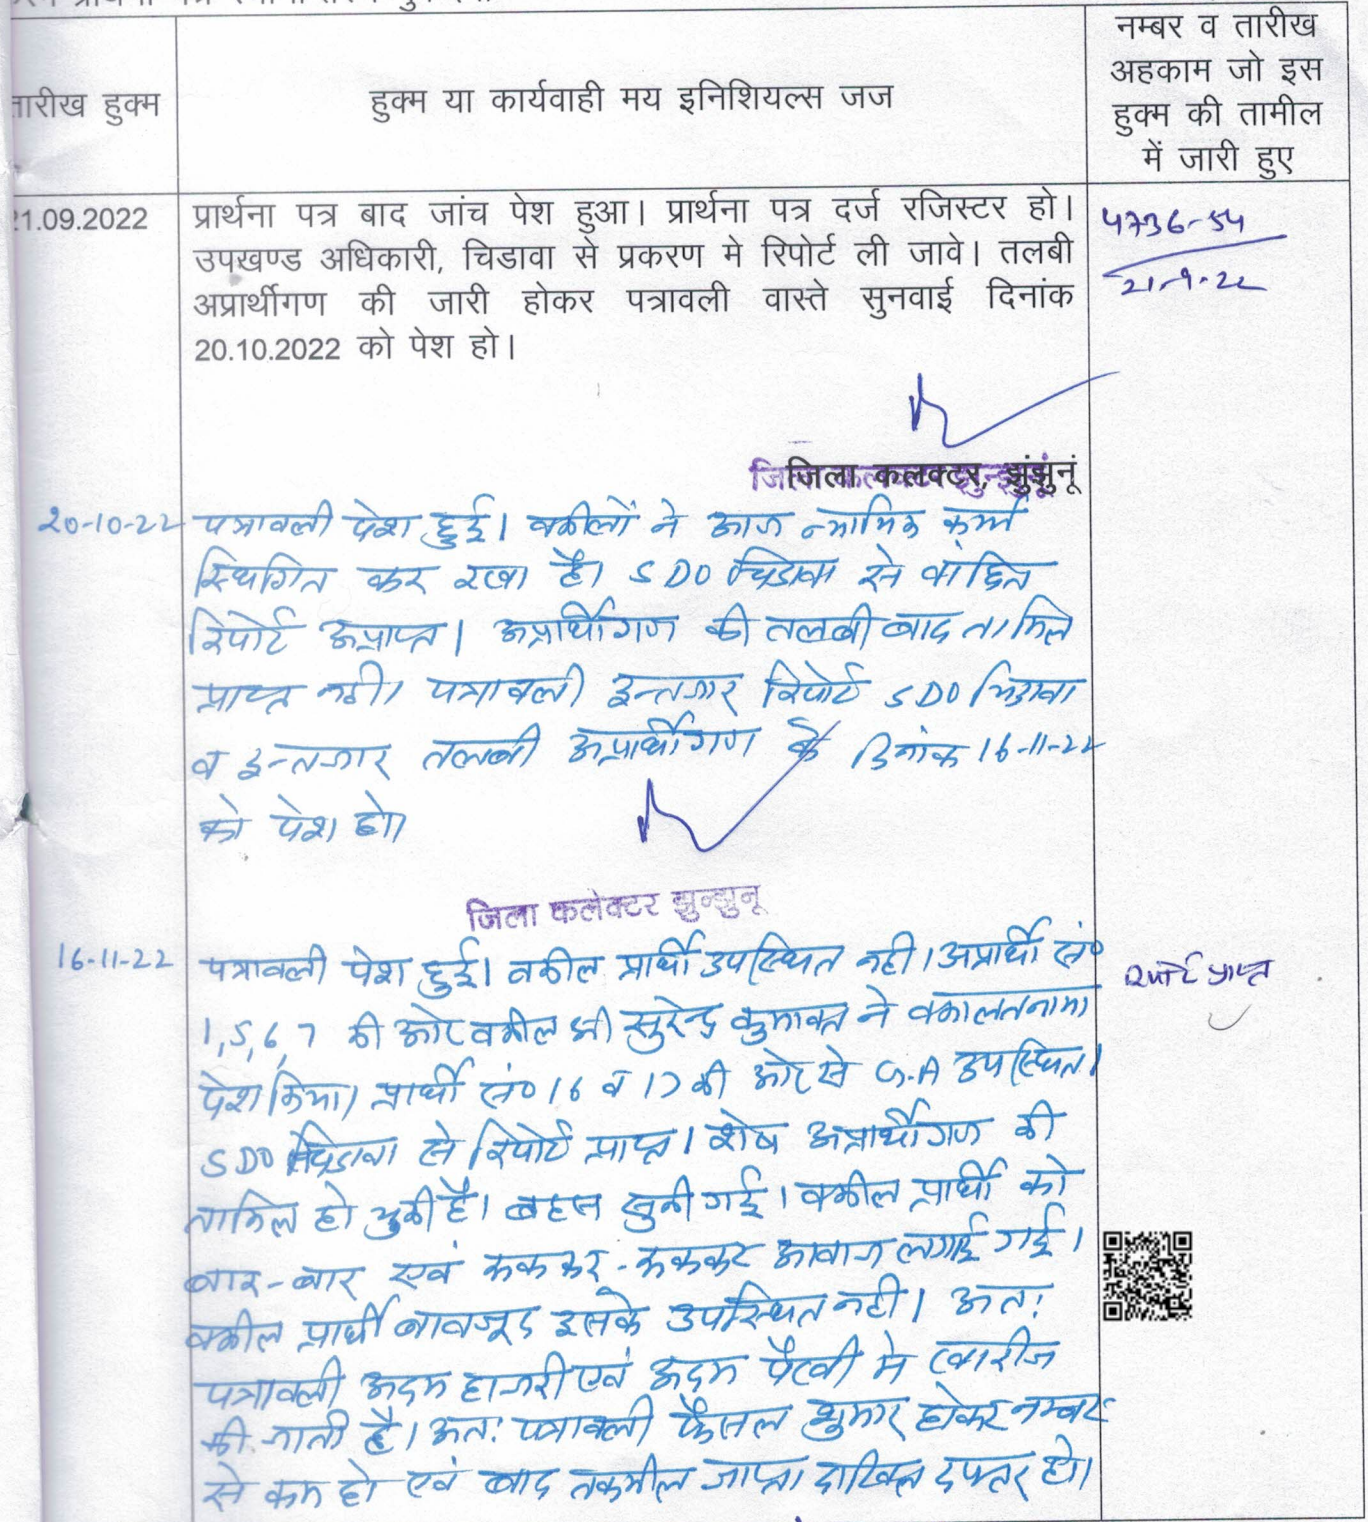 तारीख हुक्म
हुक्म या कार्यवाही मय इनिशियल्स जज
नम्बर व तारीख
अहकाम जो इस
हुक्म की तामील
में जारी हुए
21.09.2022
प्रार्थना पत्र बाद जांच पेश हुआ। प्रार्थना पत्र दर्ज रजिस्टर हो।
उपखण्ड अधिकारी, चिडावा से प्रकरण मे रिपोर्ट ली जावे। तलबी
अप्रार्थीगण की जारी होकर पत्रावली वास्ते सुनवाई दिनांक
20.10.2022 को पेश हो।
4736-54
21-9-22
जिला कलक्टर, झुंझुनूं
20-10-22
पत्रावली पेश हुई। वकीलों ने आज न्यायिक कार्य
स्थगित कर रखा है। SDO चिडावा से वांछित
रिपोर्ट अप्राप्त। अप्रार्थीगण की तलबी बाद तामिल
प्राप्त नही। पत्रावली इन्तजार रिपोर्ट SDO चिडावा
व इन्तजार तलबी अप्रार्थीगण के दिनांक 16-11-22
को पेश हो।
जिला कलेक्टर झुन्झुनू
16-11-22
पत्रावली पेश हुई। वकील प्रार्थी उपस्थित नही। अप्रार्थी सं०
1,5,6,7 की ओर वकील श्री सुरेन्द्र कुमावत ने वकालतनामा
पेश किया। प्रार्थी सं० 16 व 17 की ओर से G.A उपस्थित।
SDO चिडावा से रिपोर्ट प्राप्त। शेष अप्रार्थीगण की
तामिल हो चुकी है। बहस सुनी गई। वकील प्रार्थी को
बार-बार एवं रूककर-रूककर आवाज लगाई गई।
वकील प्रार्थी बावजूद इसके उपस्थित नही। अतः
पत्रावली अदम हाजरी एवं अदम पैरवी मे खारीज
की जाती है। अतः पत्रावली फैसल शुमार होकर नम्बर
से कम हो एवं बाद तकमील जाप्ता दाखिल दफ्तर हो।
रिपोर्ट प्राप्त